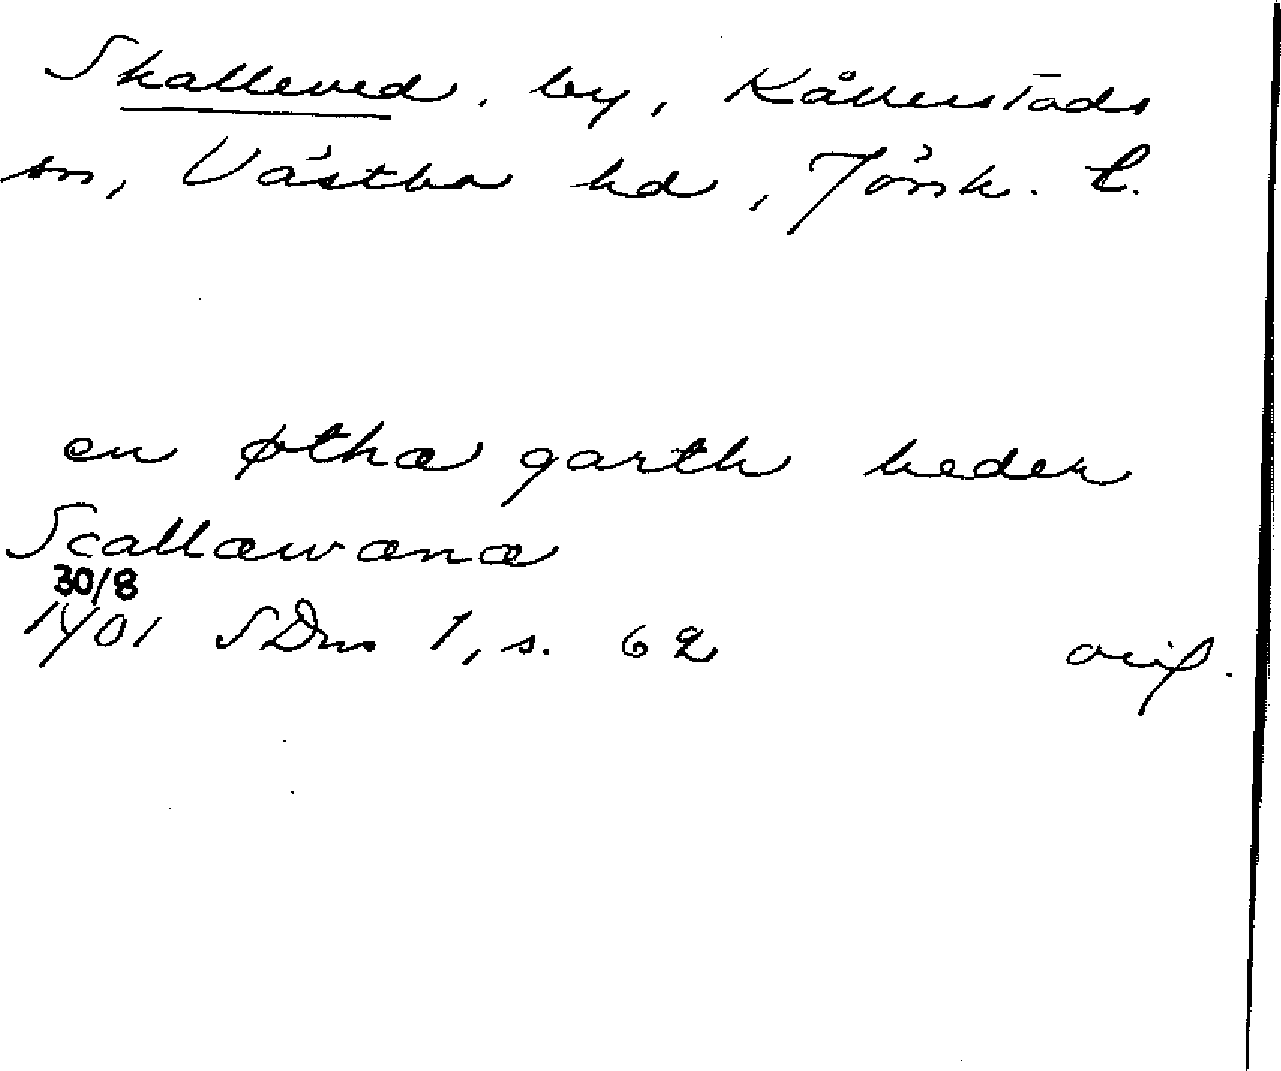 Skalleved, by, Kållerstads
sn, Västbo hd, Jönk. l.
en øthæ garth heder
Scallæwænæ
30/8
1401 SDns 1, s. 62 orig.